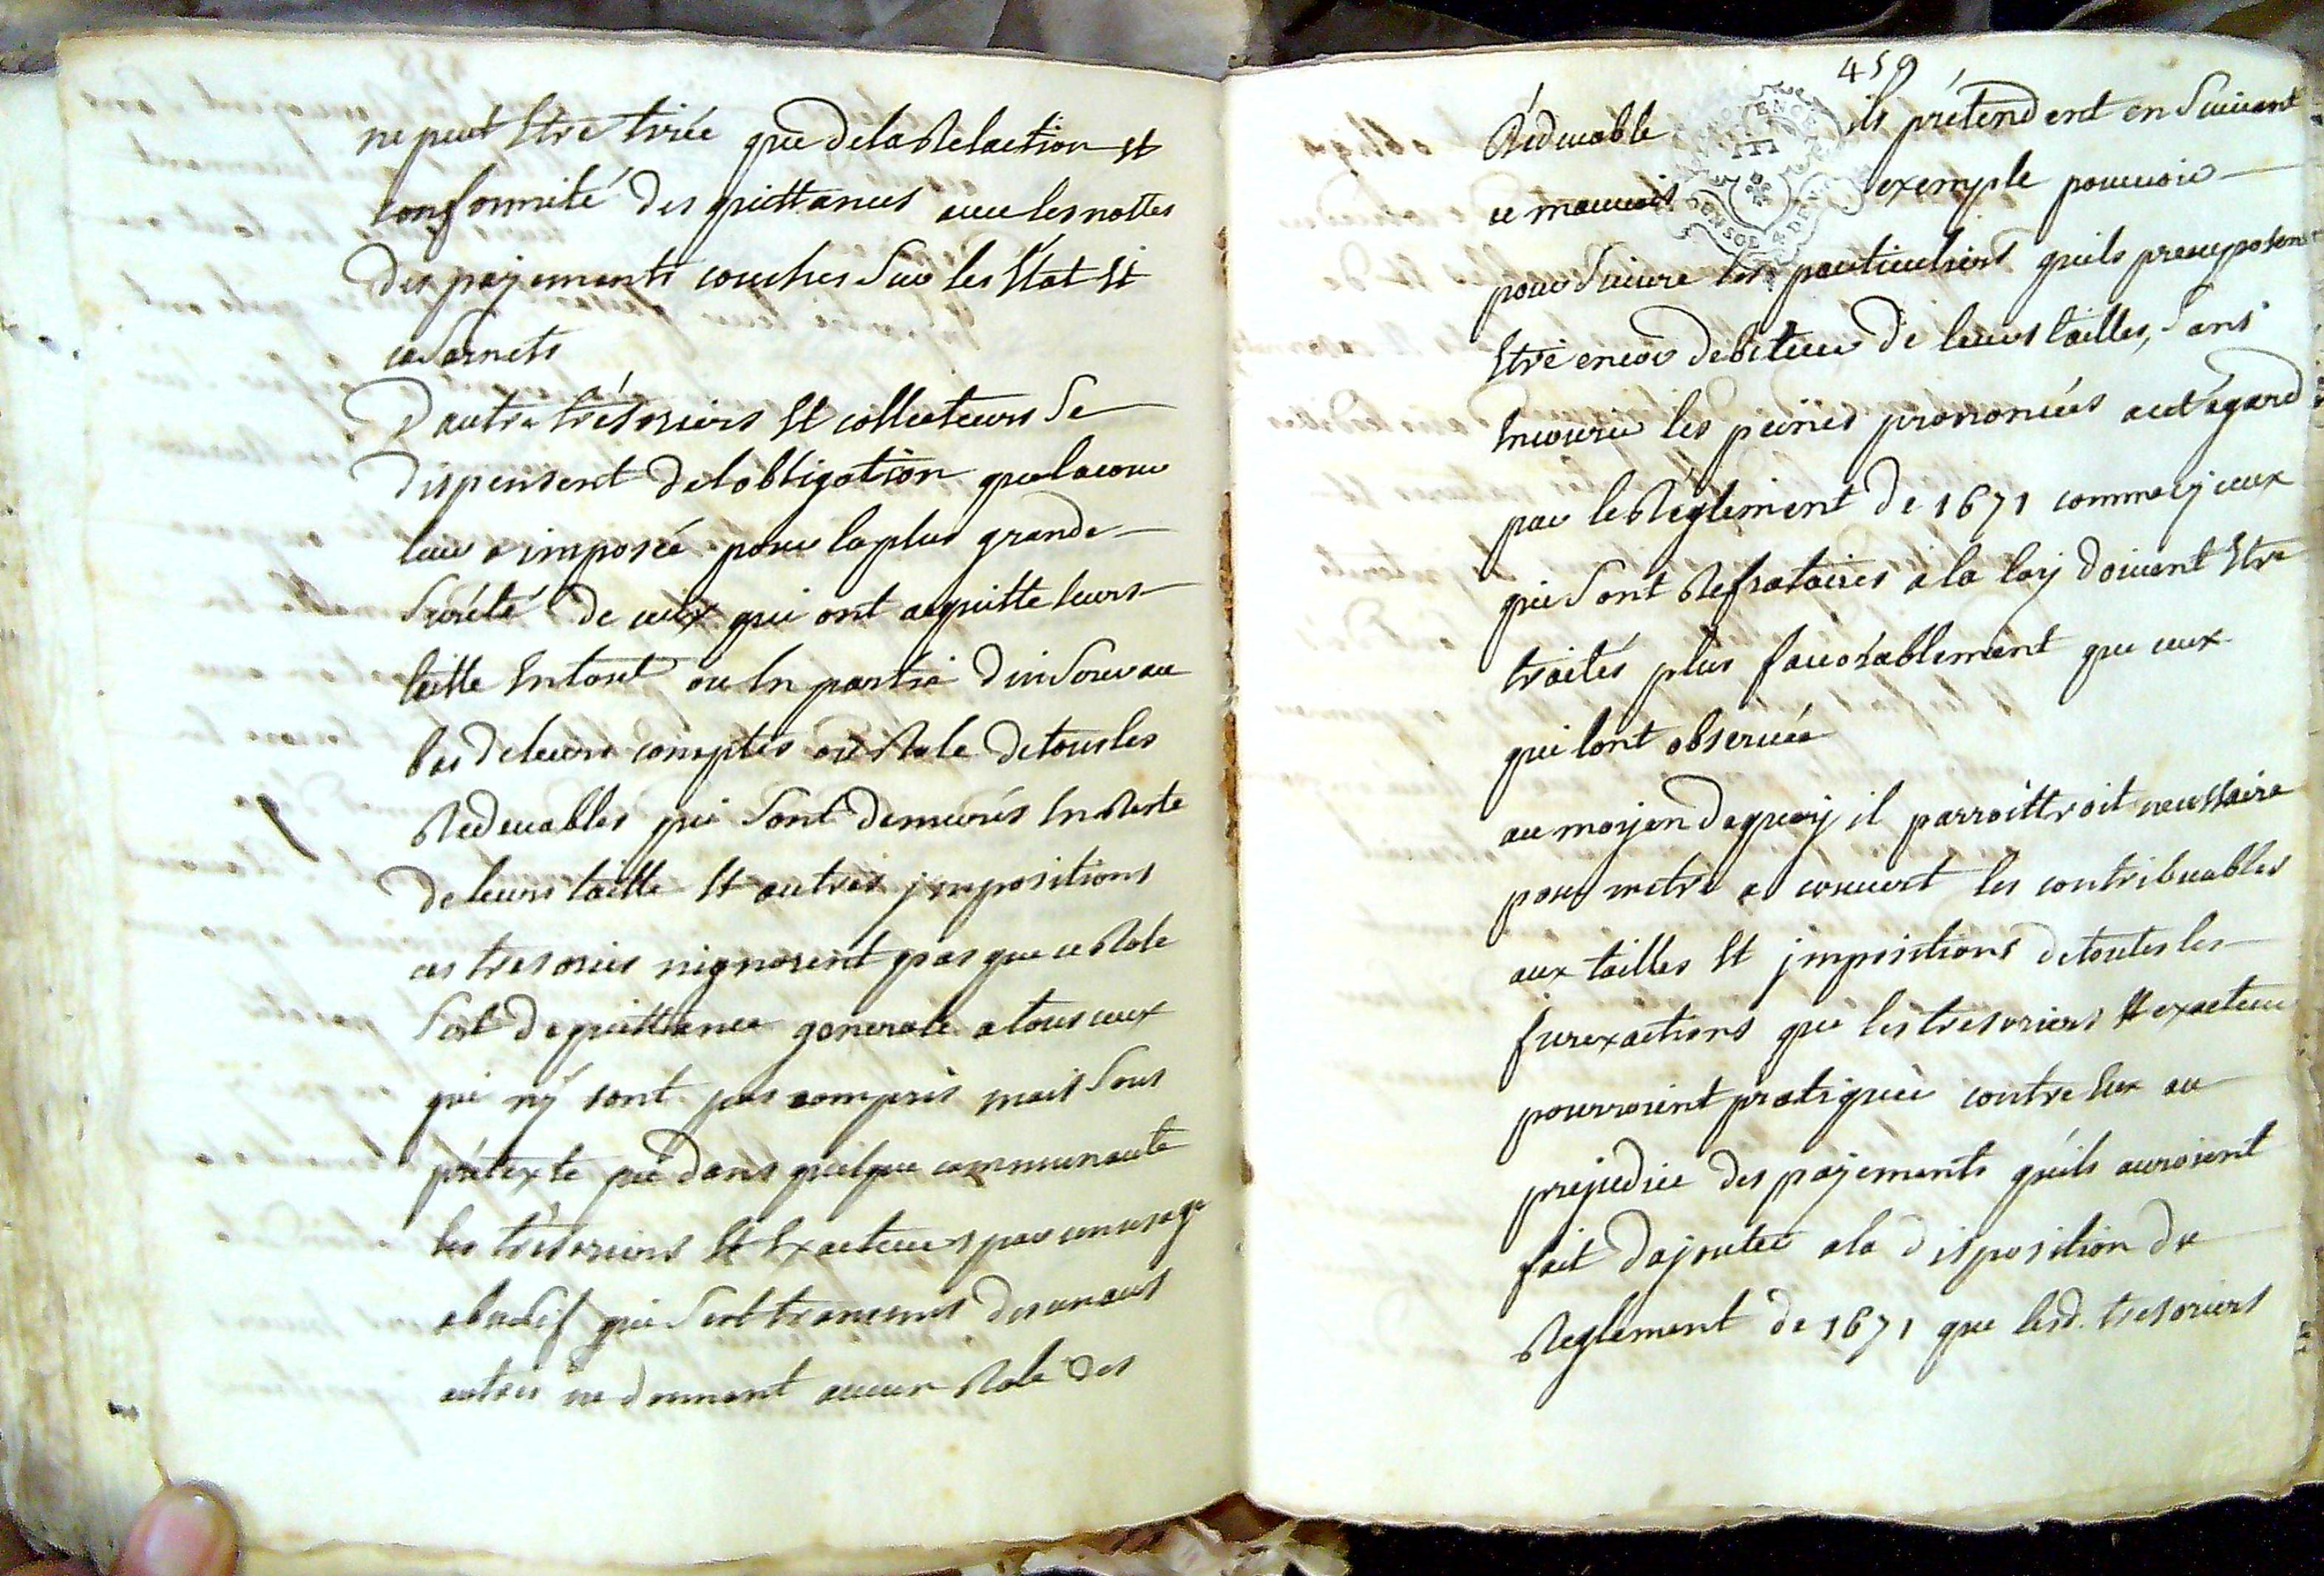 ne peut Etre tirée que dela Relaction Et
conformité des quittances avec les nottes
des payements couches Sur les Etat Et
casernets
D'autre trésoriers Et collecteurs Se
dispensent del obligation que la cour
leur a imposée pour la plus grande
Sureté de ceux qui ont acquitte leurs
taille En tout ou En partie d'inserer au
bas de leurs comptes ou Role de tous les
Redevables qui Sont demeurés En Reste
de leurs taille Et autres jmpositions
ces tresoriers n'ignorent pas que ce Role
Sert de quittance generale a tous ceux
qui ny sont pas compris mais Sous
prétexte que dans quelque communauté
les trésoriers Et Exacteurs par un usage
abusif qui S'est transmis des uns aux
autres ne donnent aucun Role des
459
Redevable ils prétendent en Suivant
ce mauvais exemple pouvoir
pour Suivre les particuliers quils presuposent
Etre encor debiteur de leurs tailles, Sans
Encourir les peines prononcées a cet égard
par le Reglement de 1671 comme sy ceux
qui Sont Refrataires a la loy doivent Etre
traités plus favorablement que ceux
qui lont observée
au moyen de quoy il parroittroit necessaire
pour metre a couvert les contribuables
aux tailles Et jmpositions de toutes les
surexactions que les tresoriers Et exacteurs
pourroient pratiquer contre Eux au
prejudice des payements qu'ils auroient
fait d'ajouter a la disposition du
Reglement de 1671 que lesd. tresoriers